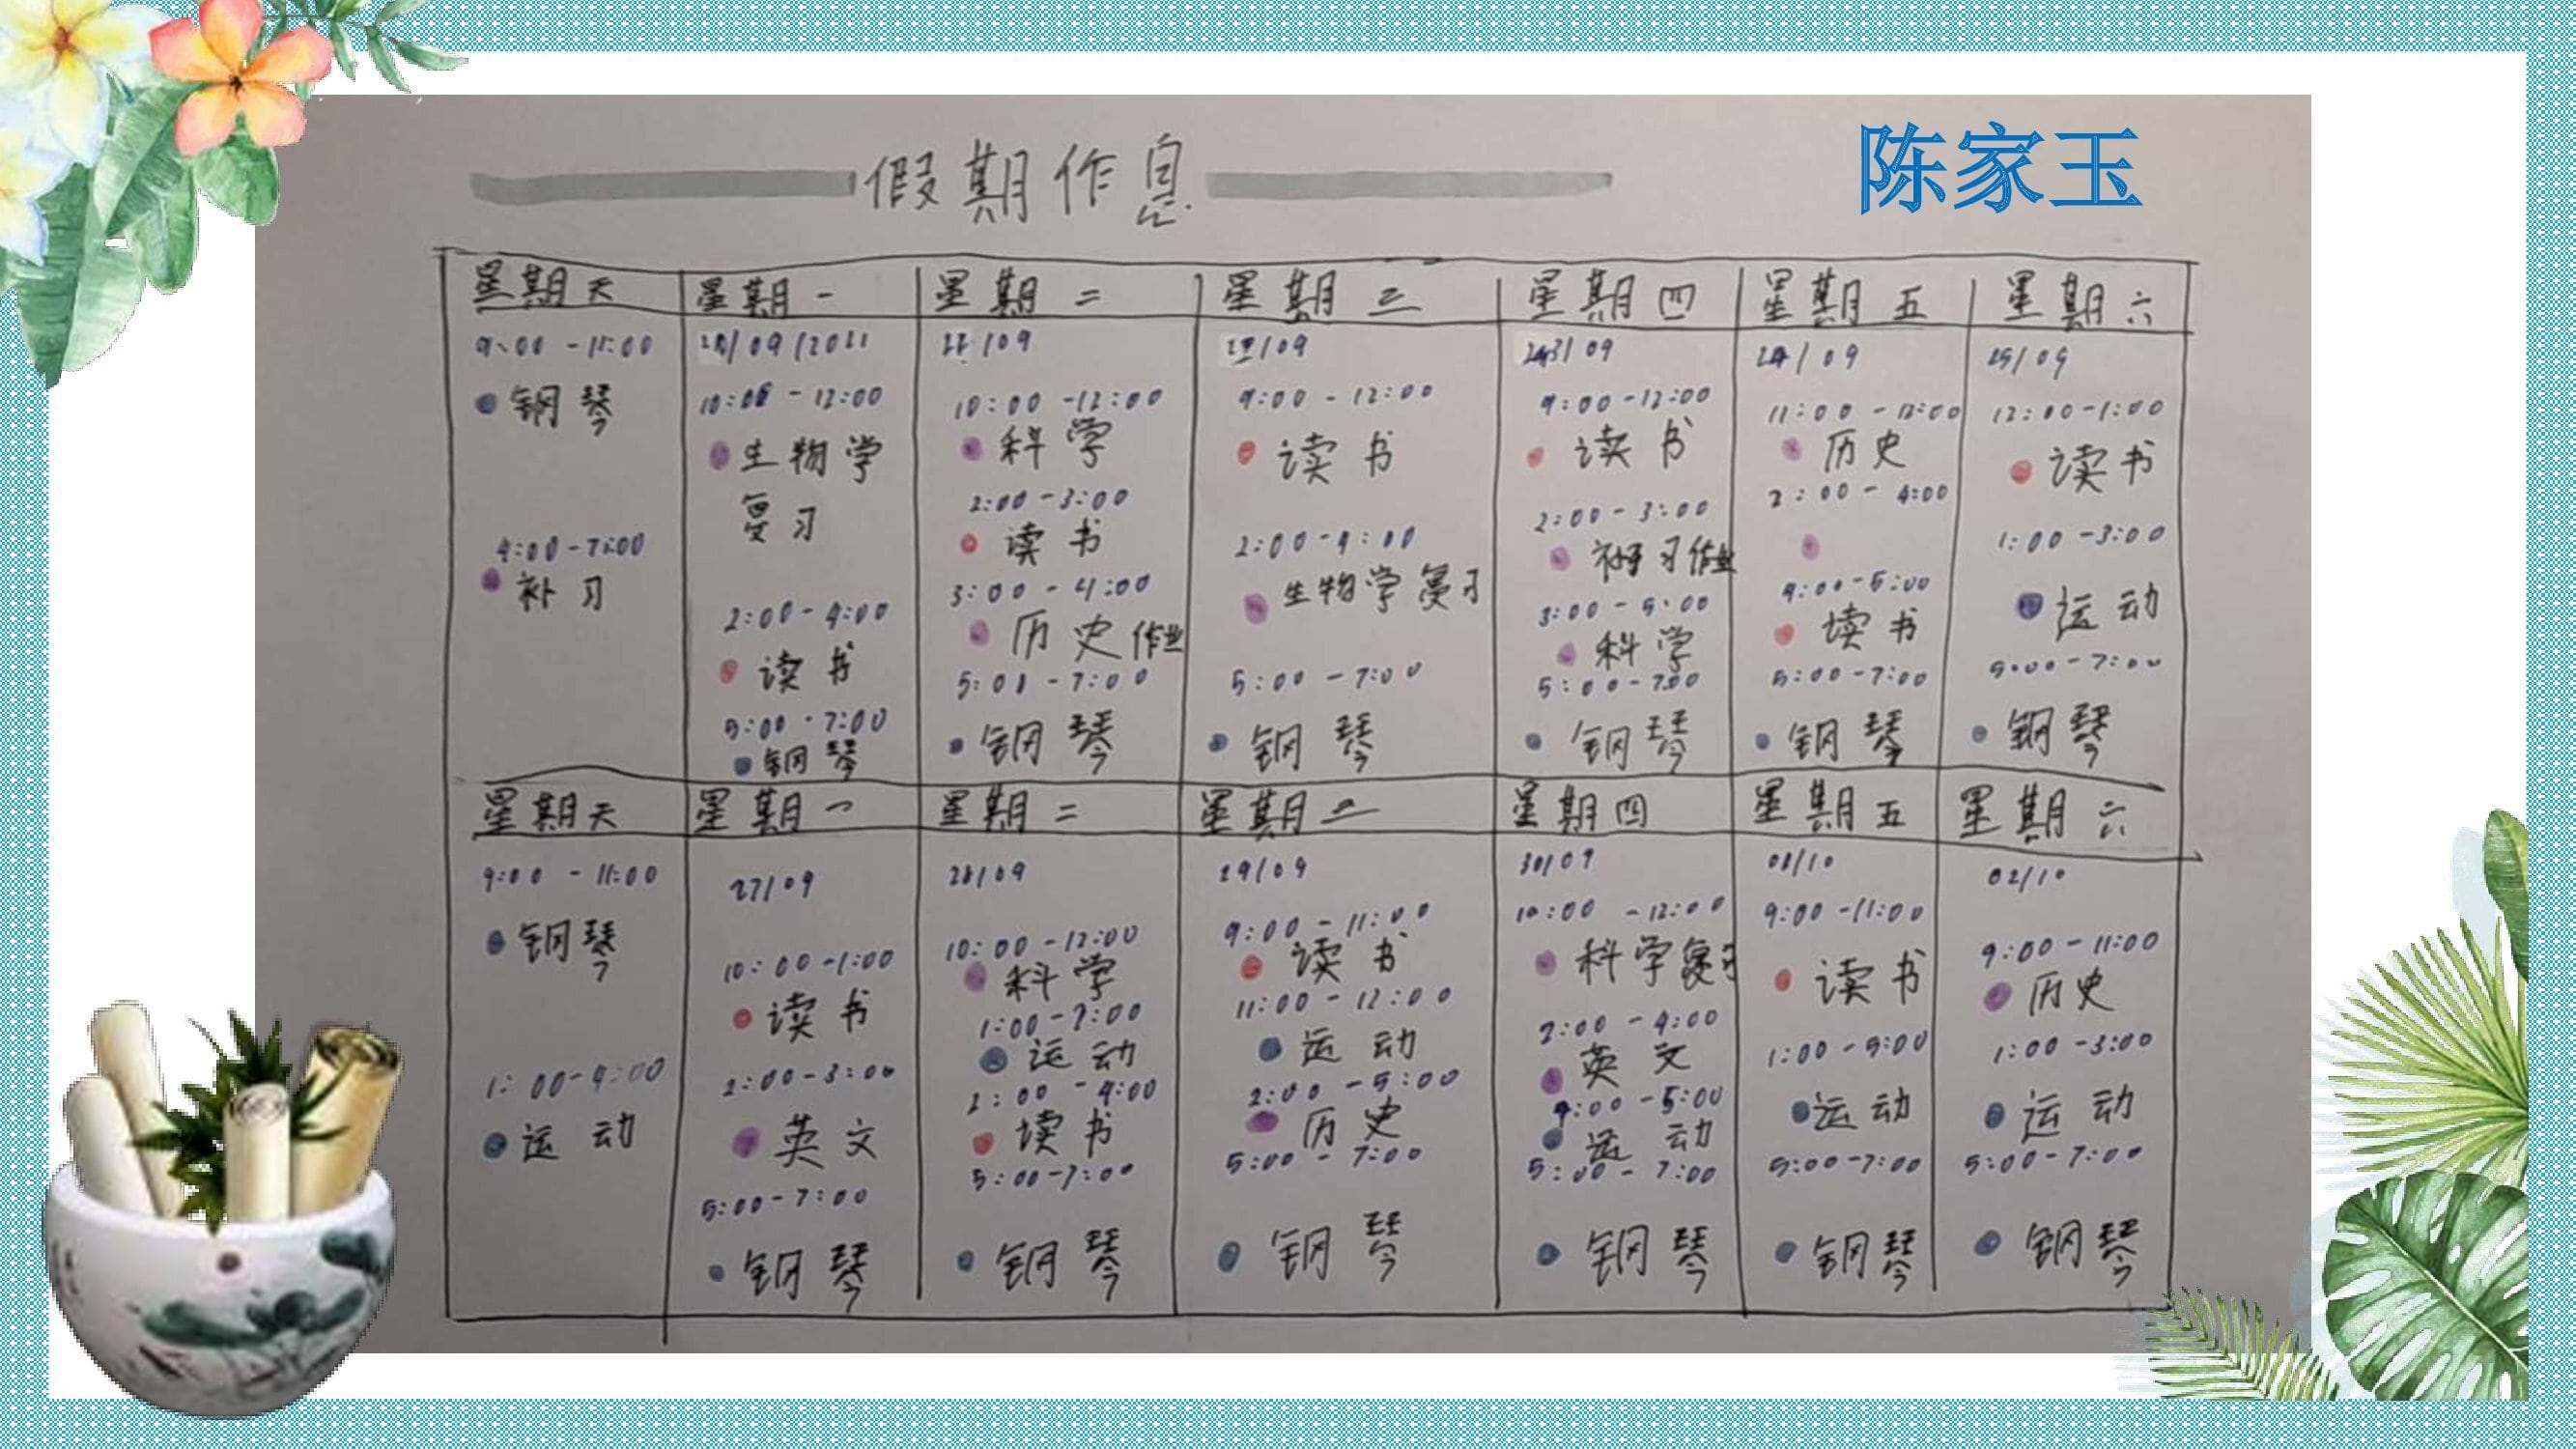 陈家玉
假期作息
星期天 星期一 星期二 星期三 星期四 星期五 星期六
9:00 - 11:00
钢琴
4:00 - 7:00
补习
/09/2021
10:00 - 12:00
生物学
复习
2:00 - 4:00
读书
5:00 - 7:00
钢琴
/09
10:00 - 12:00
科学
2:00 - 3:00
读书
3:00 - 4:00
历史作业
5:00 - 7:00
钢琴
/09
9:00 - 12:00
读书
2:00 - 4:00
生物学复习
5:00 - 7:00
钢琴
/09
9:00 - 12:00
读书
2:00 - 3:00
补习作业
3:00 - 5:00
科学
5:00 - 7:00
钢琴
24/09
11:00 - 12:00
历史
2:00 - 4:00
4:00 - 5:00
读书
5:00 - 7:00
钢琴
25/09
12:00 - 1:00
读书
1:00 - 3:00
运动
5:00 - 7:00
钢琴
星期天 星期一 星期二 星期三 星期四 星期五 星期六
9:00 - 11:00
钢琴
1:00 - 4:00
运动
27/09
10:00 - 1:00
读书
2:00 - 3:00
英文
5:00 - 7:00
钢琴
28/09
10:00 - 12:00
科学
1:00 - 2:00
运动
2:00 - 4:00
读书
5:00 - 7:00
钢琴
29/09
9:00 - 11:00
读书
11:00 - 12:00
运动
2:00 - 5:00
历史
5:00 - 7:00
钢琴
30/09
10:00 - 12:00
科学复习
2:00 - 4:00
英文
4:00 - 5:00
运动
5:00 - 7:00
钢琴
01/10
9:00 - 11:00
读书
1:00 - 5:00
运动
5:00 - 7:00
钢琴
02/10
9:00 - 11:00
历史
1:00 - 3:00
运动
5:00 - 7:00
钢琴